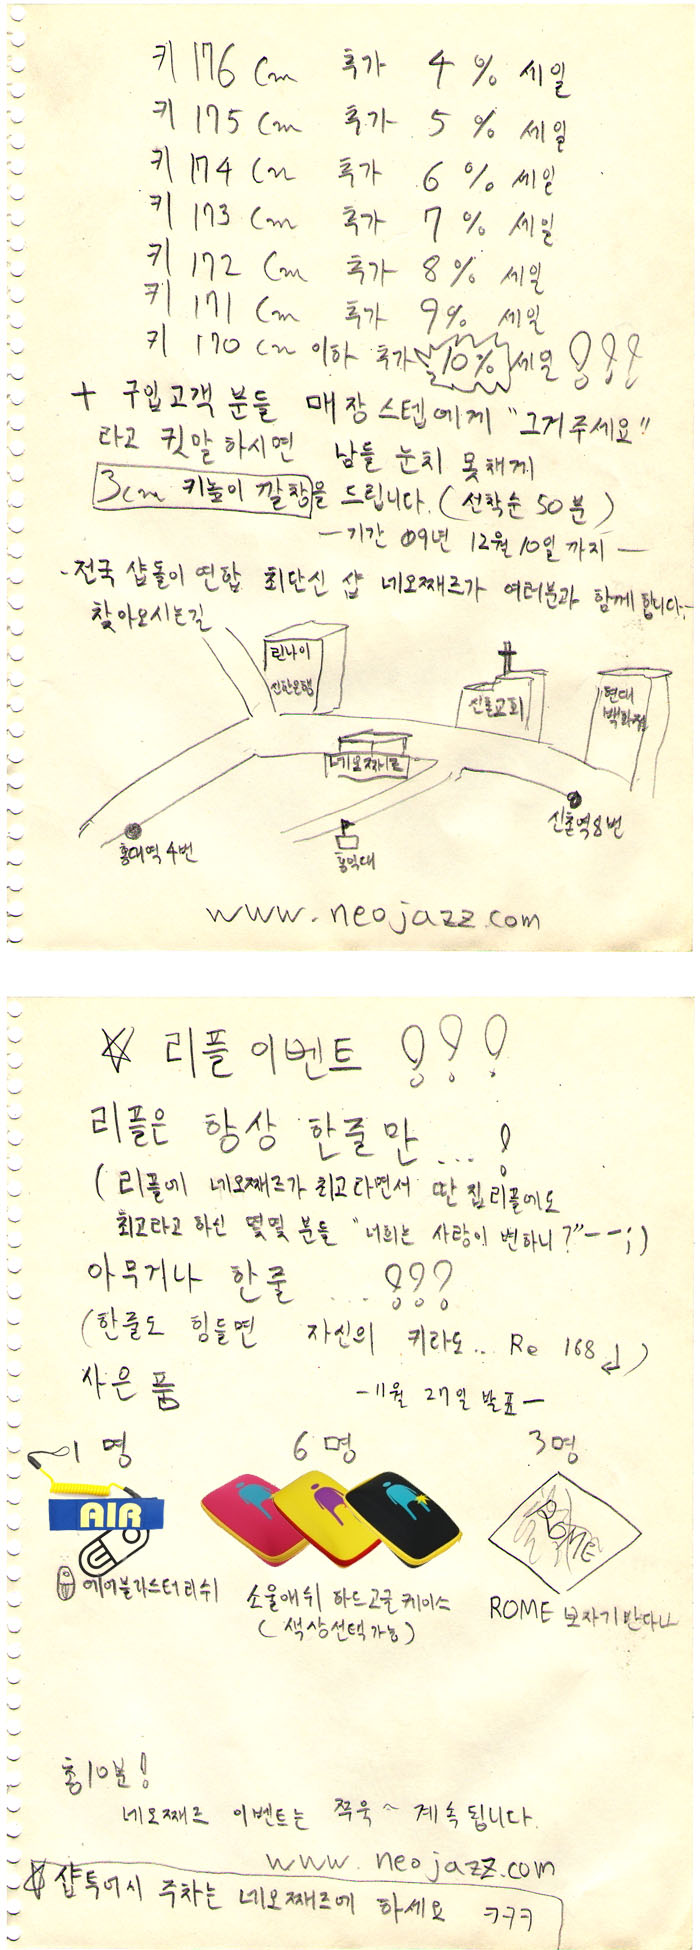 키 176 Cm 추가 4 % 세일
키 175 Cm 추가 5 % 세일
키 174 Cm 추가 6 % 세일
키 173 Cm 추가 7 % 세일
키 172 Cm 추가 8 % 세일
키 171 Cm 추가 9% 세일
키 170 cm 이하 추가 10% 세일 !!!
+ 구입고객 분들 매장 스텝에게 "그거주세요"
라고 귓말 하시면 남들 눈치 못채게
3cm 키높이 깔창을 드립니다. (선착순 50분)
-기간 09년 12월 10일 까지-
-전국 샵돌이 연합 최단신 샵 네오째즈가 여러분과 함께 합니다.-
찾아오시는길
린나이
신한은행
신촌교회
현대
백화점
네오째즈
홍대역 4번
홍익대
신촌역 8번
www.neojazz.com
☆ 리플 이벤트 !!!
리플은 항상 한줄만 ... !
(리플에 네오째즈가 최고라면서 딴 집 리플에도
최고라고 하신 몇몇 분들 "너희는 사랑이 변하니?"--;)
아무거나 한줄 ... !!!
(한줄도 힘들면 자신의 키라도.. Re 168↲)
사은품 -11월 27일 발표-
1명 6명 3명
AIR
ROME
에어블라스터 티쉬
소울애쉬 하드고글 케이스
(색상선택가능)
ROME 보자기 반다나
총10분!
네오째즈 이벤트는 쭈욱~ 계속 됩니다.
www.neojazz.com
☆ 샵투어시 주차는 네오째즈에 하세요 ㅋㅋㅋ